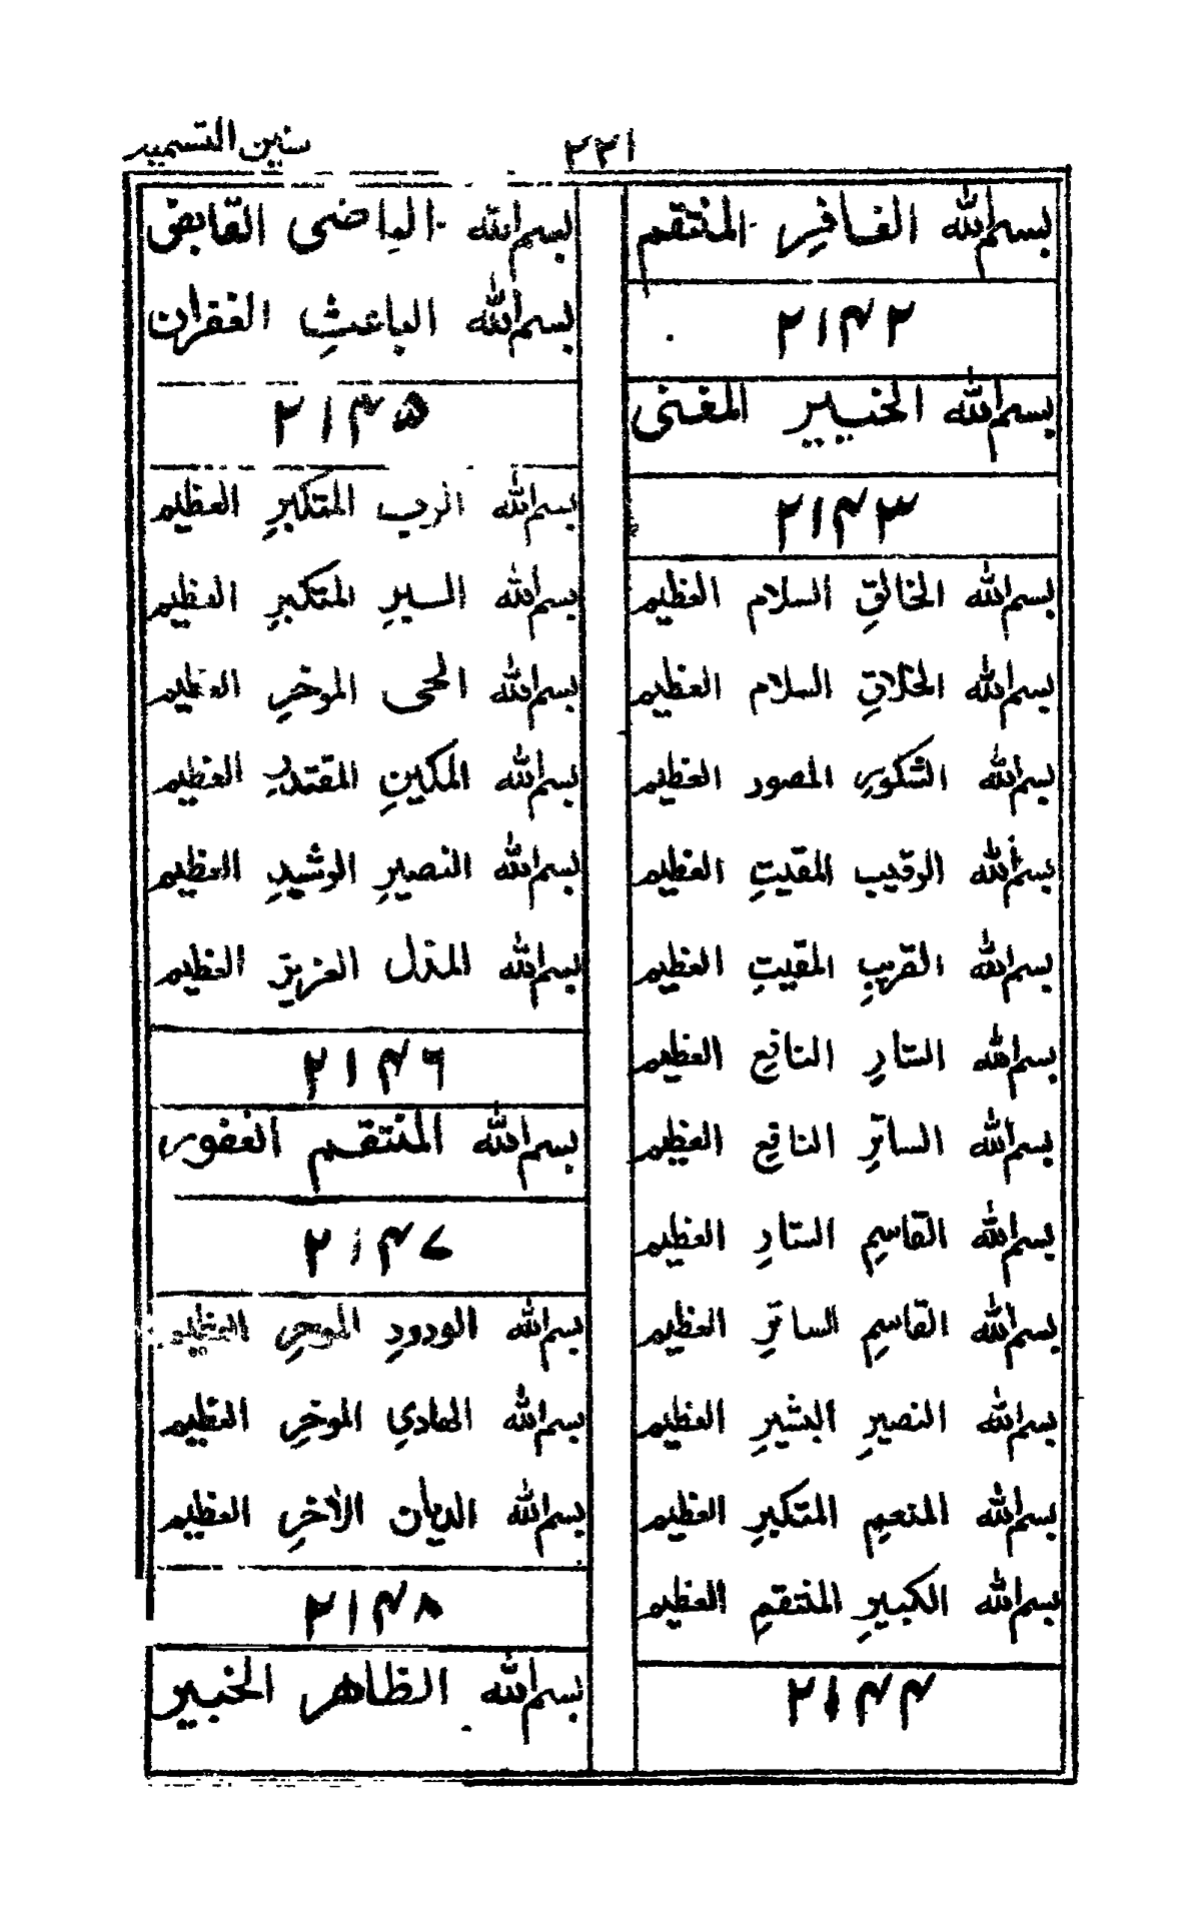 سنين التسمير
٢٣١
بسم الله الغافر المنتقم
٢١۴٢
بسم الله الخبير المغنى
٢١۴٣
بسم الله الخالقِ السلام العظيم
بسم الله الخلاقِ السلام العظيم
بسم الله الشكورِ المصور العظيم
بسم الله الرقيب المقيتِ العظيم
بسم الله القريبِ المقيتِ العظيم
بسم الله الستارِ النافعِ العظيم
بسم الله الساترِ النافعِ العظيم
بسم الله القاسمِ الستارِ العظيم
بسم الله القاسمِ الساترِ العظيم
بسم الله النصيرِ البشيرِ العظيم
بسم الله المنعمِ المتكبرِ العظيم
بسم الله الكبيرِ المنتقمِ العظيم
٢١۴۴
بسم الله الماضى القابض
بسم الله الباعثِ الغفران
٢١۴۵
بسم الله الرب المتكبرِ العظيم
بسم الله السيرِ المتكبرِ العظيم
بسم الله الحى الموخرِ العظيم
بسم الله المكينِ المقتدرِ العظيم
بسم الله النصيرِ الرشيدِ العظيم
بسم الله المنزل العزيزِ العظيم
٢١۴٦
بسم الله المنتقم الغفور
٢١۴٧
بسم الله الودودِ الموخرِ العظيم
بسم الله الهادىِ الموخرِ العظيم
بسم الله الديان الاخرِ العظيم
٢١۴٨
بسم الله الظاهر الخبير